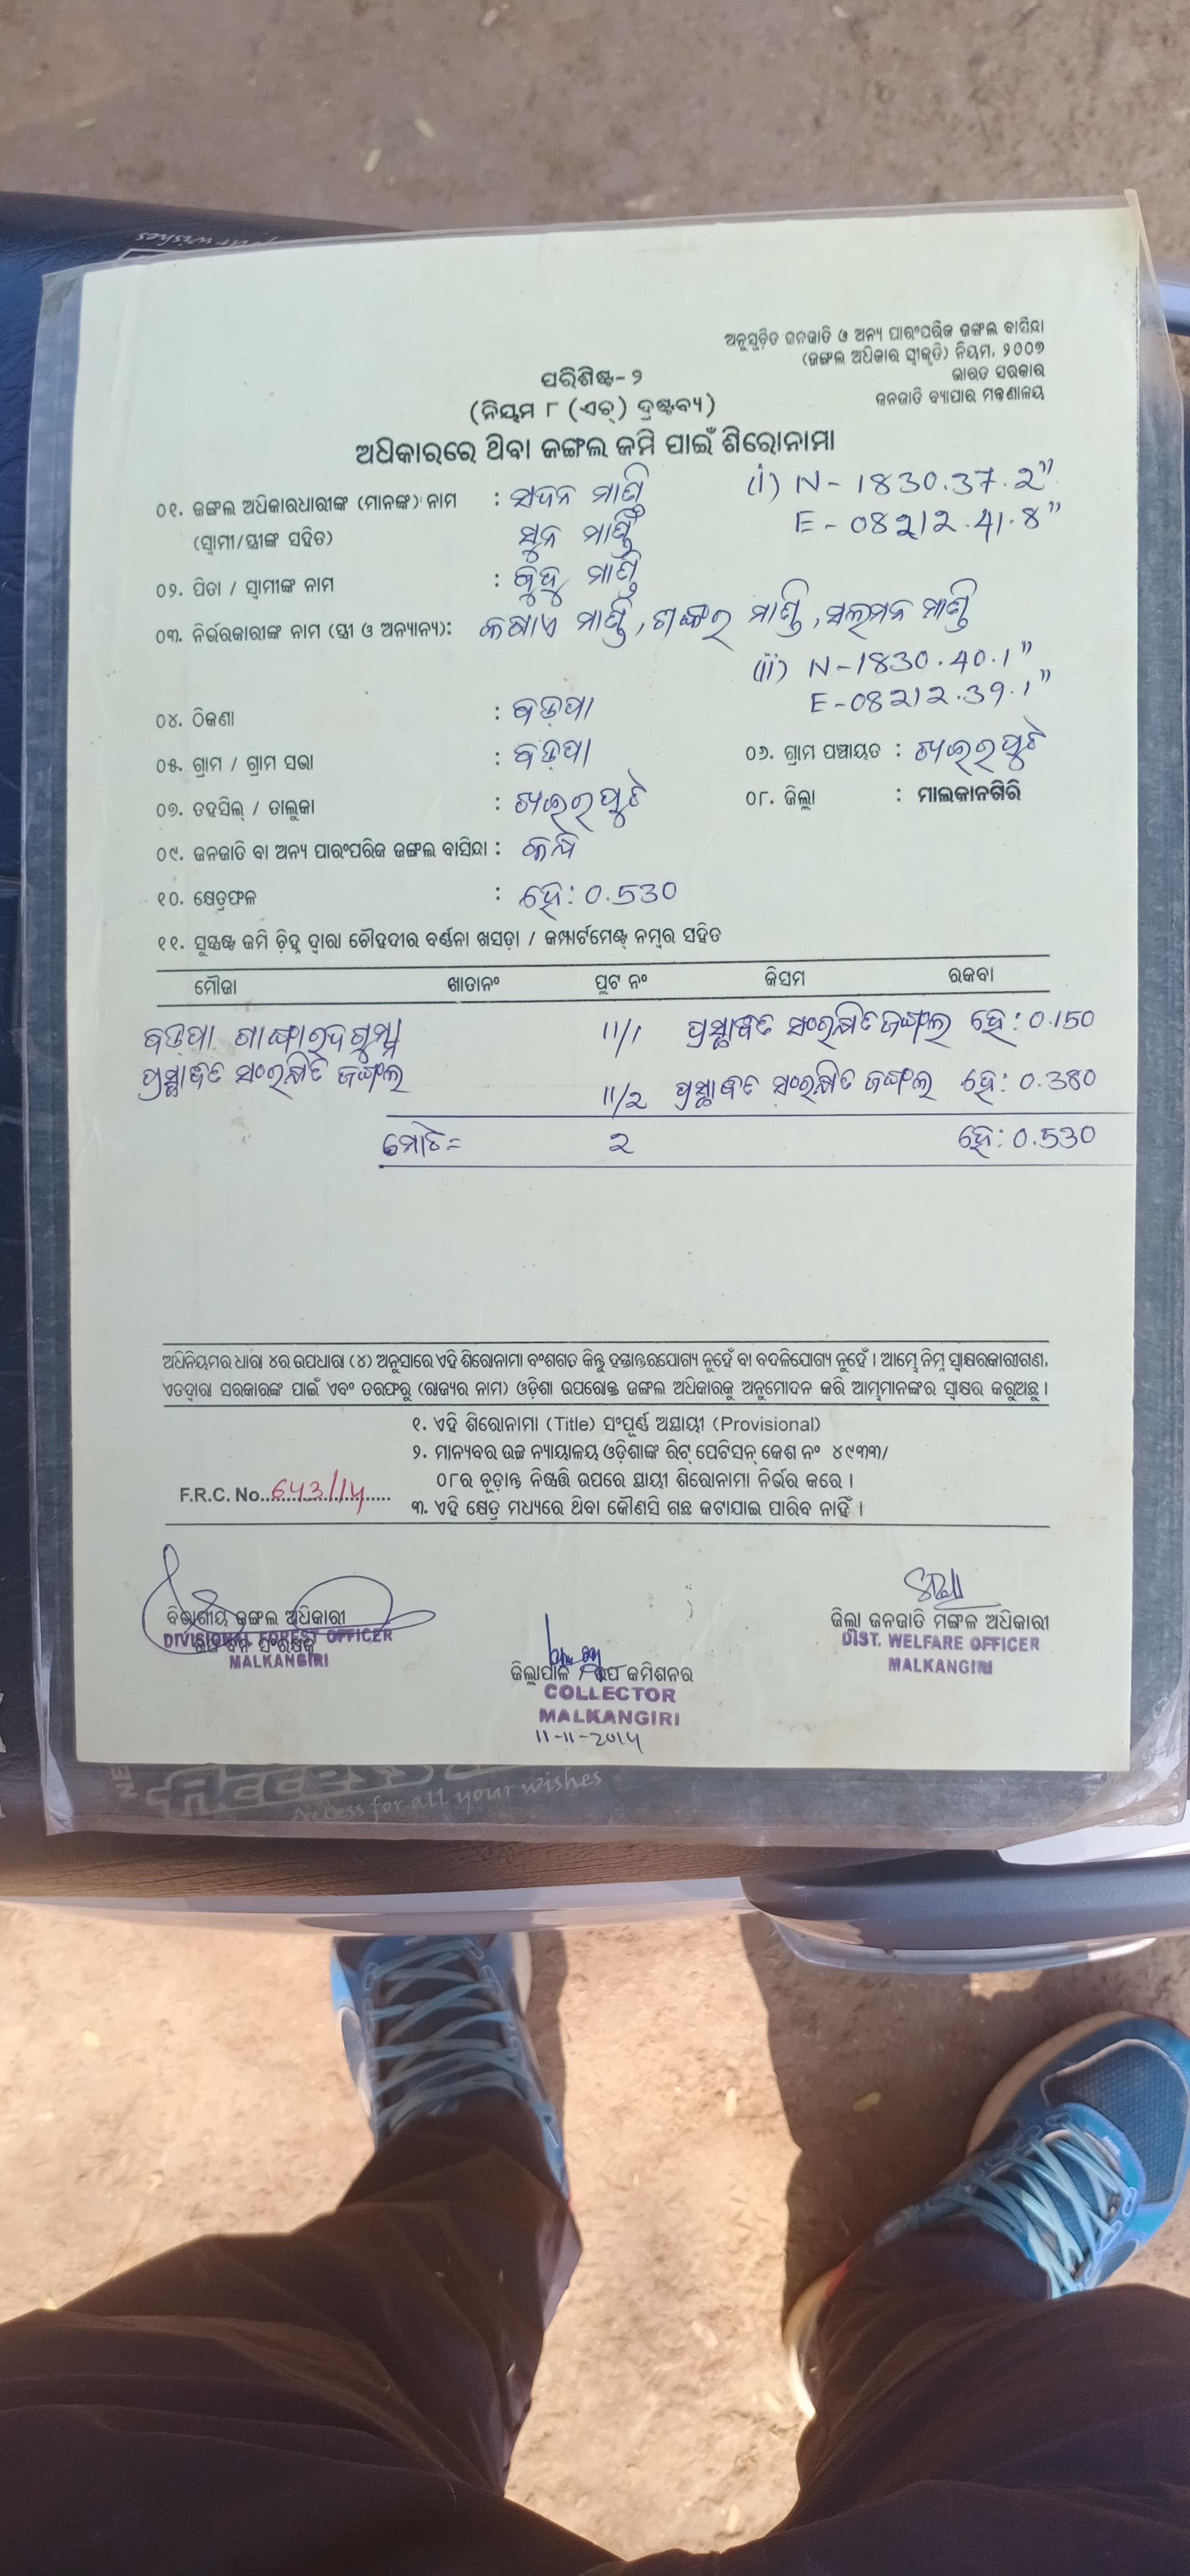 ଅନୁସୂଚିତ ଜନଜାତି ଓ ଅନ୍ୟ ପାରଂପରିକ ଜଙ୍ଗଲ ବାସିନ୍ଦା
(ଜଙ୍ଗଲ ଅଧିକାର ସ୍ୱୀକୃତି) ନିୟମ, ୨୦୦୭
ଭାରତ ସରକାର
ଜନଜାତି ବ୍ୟାପାର ମନ୍ତ୍ରଣାଳୟ
ପରିଶିଷ୍ଟ- ୨
(ନିୟମ ୮ (ଏଚ୍) ଦ୍ରଷ୍ଟବ୍ୟ)
ଅଧିକାରରେ ଥିବା ଜଙ୍ଗଲ ଜମି ପାଇଁ ଶିରୋନାମା
୦୧. ଜଙ୍ଗଲ ଅଧିକାରଧାରୀଙ୍କ (ମାନଙ୍କ) ନାମ : ସଦନ ମାଣ୍ଡି (i) N - 1830.37.2"
(ସ୍ୱାମୀ/ସ୍ତ୍ରୀଙ୍କ ସହିତ) ସୁନ ମାଣ୍ଡି E - 08212.41.8"
୦୨. ପିତା / ସ୍ୱାମୀଙ୍କ ନାମ : ବୁଦୁ ମାଣ୍ଡି
୦୩. ନିର୍ଭରକାରୀଙ୍କ ନାମ (ସ୍ତ୍ରୀ ଓ ଅନ୍ୟାନ୍ୟ): ମାଣ୍ଡି, ଶଙ୍କର ମାଣ୍ଡି, ସଲମନ ମାଣ୍ଡି
(ii) N-1830.40.1"
E-08212.39.1"
୦୪. ଠିକଣା : ବଡ଼ପା
୦୫. ଗ୍ରାମ / ଗ୍ରାମ ସଭା : ବଡ଼ପା ୦୬. ଗ୍ରାମ ପଞ୍ଚାୟତ : ଖଇରପୁଟ
୦୭. ତହସିଲ୍ / ତାଲୁକା : ଖଇରପୁଟ ୦୮. ଜିଲ୍ଲା : ମାଲକାନଗିରି
୦୯. ଜନଜାତି ବା ଅନ୍ୟ ପାରଂପରିକ ଜଙ୍ଗଲ ବାସିନ୍ଦା : କନ୍ଧ
୧୦. କ୍ଷେତ୍ରଫଳ : ହେ: 0.530
୧୧. ସୁସ୍ପଷ୍ଟ ଜମି ଚିହ୍ନ ଦ୍ୱାରା ଚୌହଦୀର ବର୍ଣ୍ଣନା ଖସଡ଼ା / କମ୍ପାର୍ଟମେଣ୍ଟ୍ ନମ୍ବର ସହିତ
ମୌଜା ଖାତାନଂ ପ୍ଲଟ ନଂ କିସମ ରକବା
ବଡ଼ପା 11/1 ପ୍ରସ୍ତାବିତ ସଂରକ୍ଷିତ ଜଙ୍ଗଲ ହେ: 0.150
ପ୍ରସ୍ତାବିତ ସଂରକ୍ଷିତ ଜଙ୍ଗଲ
11/2 ପ୍ରସ୍ତାବିତ ସଂରକ୍ଷିତ ଜଙ୍ଗଲ ହେ: 0.380
ମୋଟ= 2 ହେ: 0.530
ଅଧିନିୟମର ଧାରା ୪ର ଉପଧାରା (୪) ଅନୁସାରେ ଏହି ଶିରୋନାମା ବଂଶଗତ କିନ୍ତୁ ହସ୍ତାନ୍ତରଯୋଗ୍ୟ ନୁହେଁ ବା ବଦଳିଯୋଗ୍ୟ ନୁହେଁ । ଆମ୍ଭେ ନିମ୍ନ ସ୍ୱାକ୍ଷରକାରୀଗଣ,
ଏତଦ୍ୱାରା ସରକାରଙ୍କ ପାଇଁ ଏବଂ ତରଫରୁ (ରାଜ୍ୟର ନାମ) ଓଡ଼ିଶା ଉପରୋକ୍ତ ଜଙ୍ଗଲ ଅଧିକାରକୁ ଅନୁମୋଦନ କରି ଆମ୍ଭମାନଙ୍କର ସ୍ୱାକ୍ଷର କରୁଅଛୁ ।
୧. ଏହି ଶିରୋନାମା (Title) ସଂପୂର୍ଣ୍ଣ ଅସ୍ଥାୟୀ (Provisional)
୨. ମାନ୍ୟବର ଉଚ୍ଚ ନ୍ୟାୟାଳୟ ଓଡ଼ିଶାଙ୍କ ରିଟ୍ ପେଟିସନ୍ କେଶ ନଂ ୪୯୩୩/
୦୮ର ଚୂଡ଼ାନ୍ତ ନିଷ୍ପତ୍ତି ଉପରେ ସ୍ଥାୟୀ ଶିରୋନାମା ନିର୍ଭର କରେ ।
F.R.C. No. 643/14
୩. ଏହି କ୍ଷେତ୍ର ମଧ୍ୟରେ ଥିବା କୌଣସି ଗଛ କଟାଯାଇ ପାରିବ ନାହିଁ ।
ବିଭାଗୀୟ ଜଙ୍ଗଲ ଅଧିକାରୀ
DIVISIONAL FOREST OFFICER
ଉପ ବନ ସଂରକ୍ଷକ
MALKANGIRI
ଜିଲ୍ଲାପାଳ / ଉପ କମିଶନର
COLLECTOR
MALKANGIRI
11-11-2014
ଜିଲ୍ଲା ଜନଜାତି ମଙ୍ଗଳ ଅଧିକାରୀ
DIST. WELFARE OFFICER
MALKANGIRI
Access
Access for all your wishes